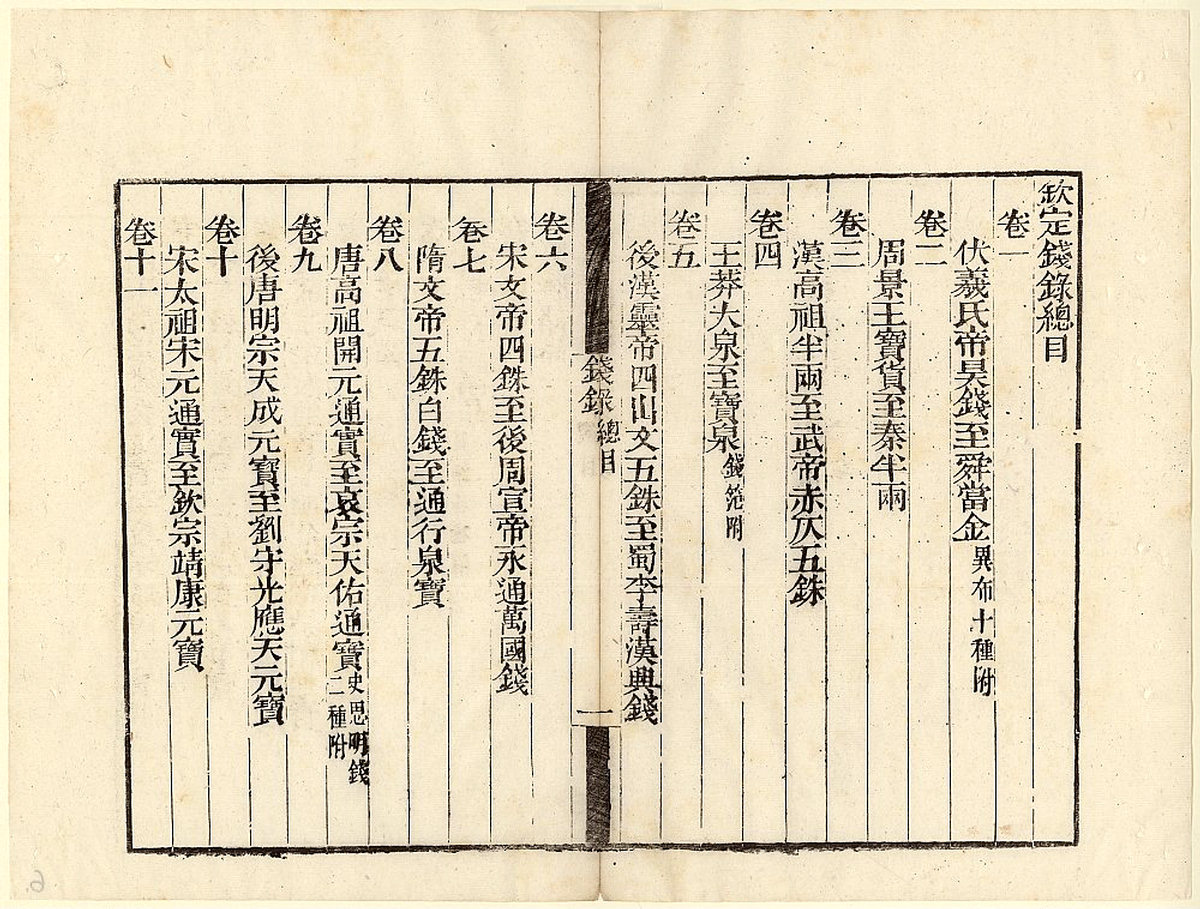 欽定錢錄總目
卷一
伏羲氏帝昊錢至舜當金異布十種附
卷二
周景王寶貨至秦半兩
卷三
漢高祖半兩至武帝赤仄五銖
卷四
王莽大泉至寶泉錢范附
卷五
後漢靈帝四出文五銖至蜀李壽漢興錢
錢錄 總目 一
卷六
宋文帝四銖至後周宣帝永通萬國錢
卷七
隋文帝五銖白錢至通行泉寶
卷八
唐高祖開元通寶至哀宗天佑通寶史思明錢二種附
卷九
後唐明宗天成元寶至劉守光應天元寶
卷十
宋太祖宋元通寶至欽宗靖康元寶
卷十一
6.